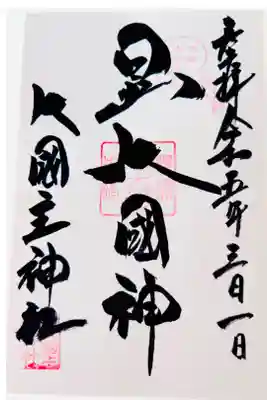 奉拝 令和五年三月一日
顕大國神
大國主神社